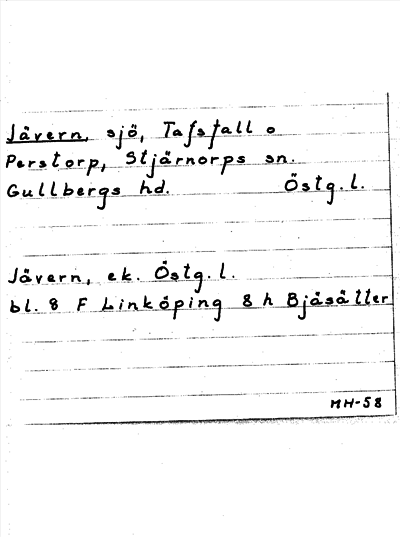 Jävern, sjö, Tafsfall o
Perstorp, Stjärnorps sn.
Gullbergs hd. Östg. l.
Jävern, ek. Östg. l.
bl. 8 F Linköping 8 h Bjäsätter
MH-58